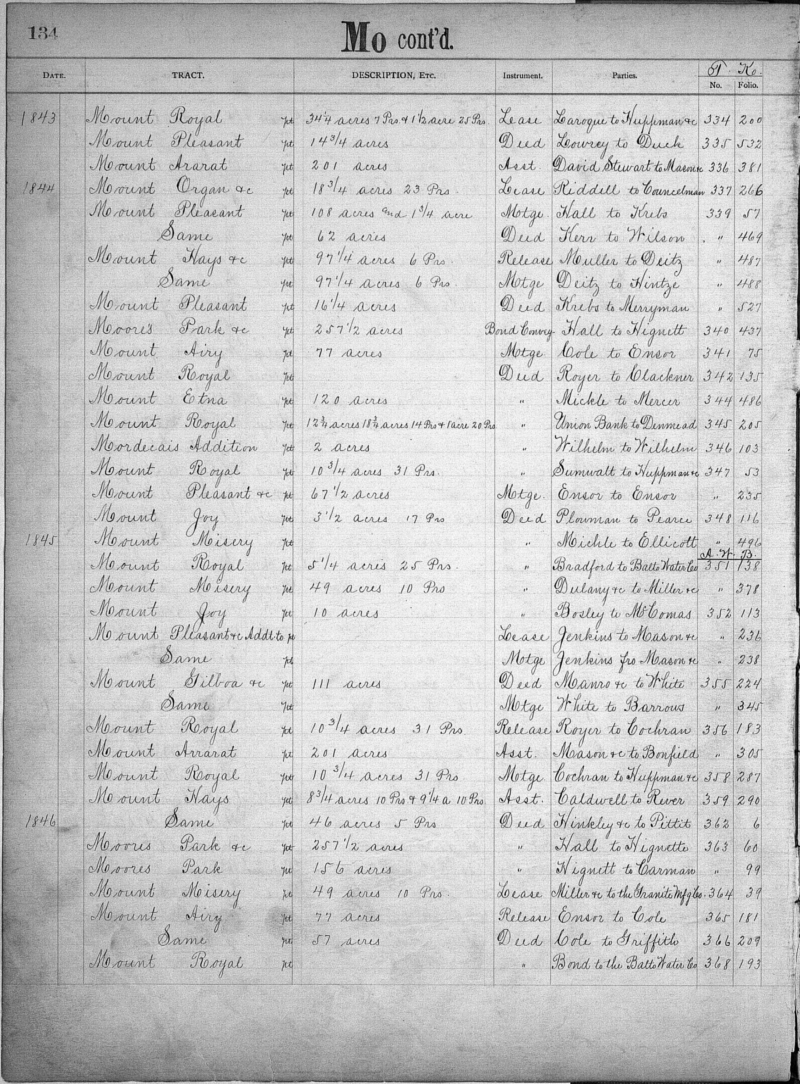 134
Mo cont'd.
DATE. TRACT. DESCRIPTION, ETC. Instrument. Parties. T. K.
No. Folio.
1843 Mount Royal pt 34 1/4 acres 7 Prs & 1 1/2 acre 25 Prs Lease Laroque to Huppman &c 334 200
Mount Pleasant pt 14 3/4 acres Deed Lowrey to Duck 335 532
Mount Ararat pt 201 acres Asst. David Stewart to Mason &c 336 381
1844 Mount Organ &c pt 18 3/4 acres 23 Prs. Lease Riddell to Councelman 337 266
Mount Pleasant pt 108 acres and 1 3/4 acre Motge Hall to Krebs 339 57
Same pt 62 acres Deed Kerr to Wilson " 469
Mount Hays &c pt 97 1/4 acres 6 Prs. Release Muller to Deitz " 487
Same pt 97 1/4 acres 6 Prs. Motge Deitz to Hintze " 488
Mount Pleasant pt 16 1/4 acres Deed Krebs to Merryman " 527
Moores Park &c pt 257 1/2 acres Bond Convey Hall to Hignett 340 437
Mount Airy pt 77 acres Motge Cole to Ensor 341 75
Mount Royal pt Deed Royer to Clackner 342 135
Mount Etna pt 120 acres " Mickle to Mercer 344 486
Mount Royal pt acres acres 14 Prs & 1 acre 20 Prs " Union Bank to Denmead 345 205
Mordecais Addition pt 2 acres " Wilhelm to Wilhelm 346 103
Mount Royal pt 10 3/4 acres 31 Prs. " Sumwalt to Huppman &c 347 53
Mount Pleasant &c pt 67 1/2 acres Motge. Ensor to Ensor " 235
Mount Joy pt 3 1/2 acres 17 Prs Deed Plowman to Pearce 348 116
1845 Mount Misery pt " Mickle to Ellicott " 496
A. W. B.
Mount Royal pt 5 1/4 acres 25 Prs. " Bradford to Balto Water Co 351 138
Mount Misery pt 49 acres 10 Prs " Dulany &c to Miller &c " 378
Mount Joy pt 10 acres " Bosley to McComas 352 113
Mount Pleasant &c Addl to pt Lease Jenkins to Mason &c " 236
Same pt Motge Jenkins fro Mason &c " 238
Mount Gilboa &c pt 111 acres Deed Manro &c to White 355 224
Same pt Motge White to Barrows " 345
Mount Royal pt 10 3/4 acres 31 Prs. Release Royer to Cochran 356 183
Mount Arrarat pt 201 acres Asst. Mason &c to Bonfield " 305
Mount Royal pt 10 3/4 acres 31 Prs. Motge Cochran to Huppman &c 358 287
Mount Hays pt 8 3/4 acres 10 Prs & 9 1/4 a 10 Prs Asst. Caldwell to Rever 359 290
1846 Same pt 46 acres 5 Prs Deed Hinkley &c to Pittit 362 6
Moores Park &c pt 257 1/2 acres " Hall to Hignette 363 60
Moores Park pt 156 acres " Hignett to Carman " 99
Mount Misery pt 49 acres 10 Prs. Lease Miller &c to the Granite Mfg Co. 364 39
Mount Airy pt 77 acres Release Ensor to Cole 365 181
Same pt 57 acres Deed Cole to Griffith 366 209
Mount Royal pt " Bond to the Balto Water Co 368 193